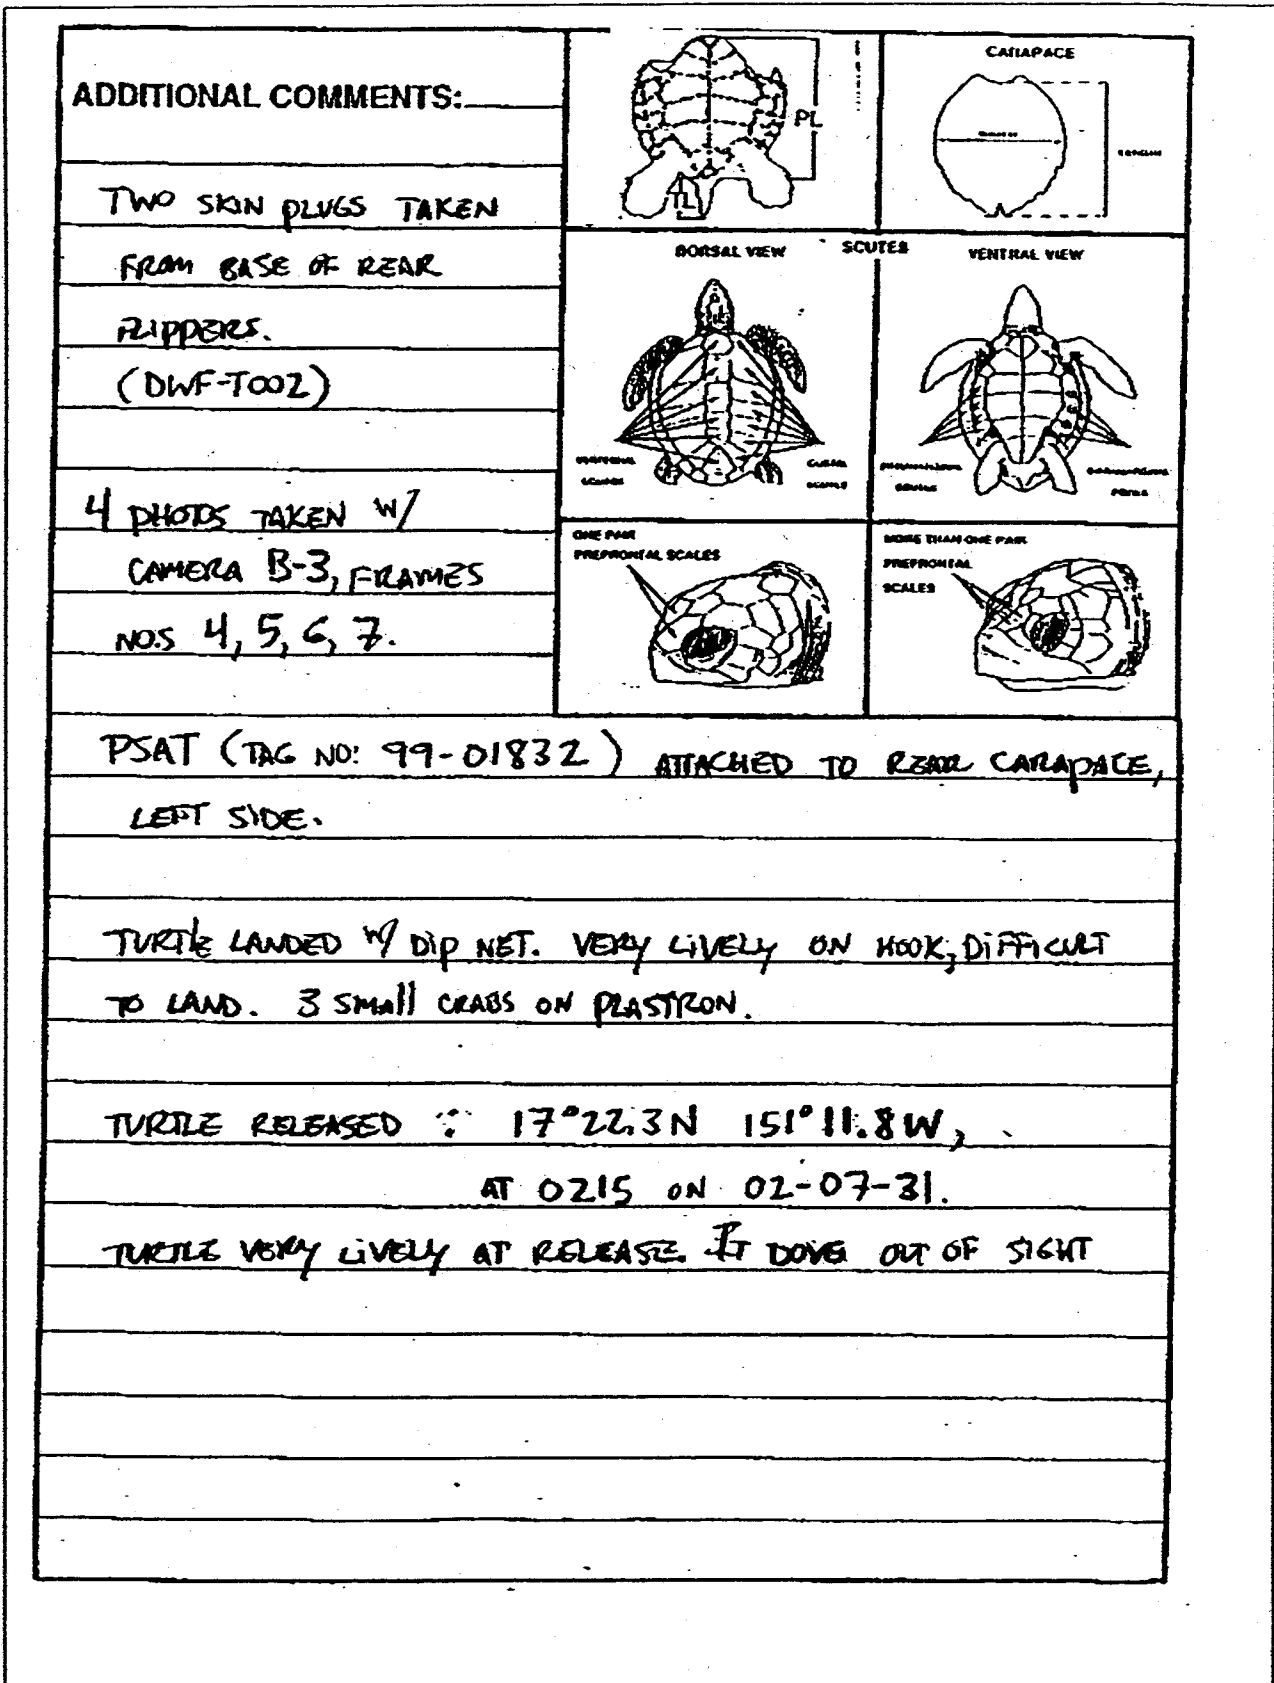 ADDITIONAL COMMENTS:
TWO SKIN PLUGS TAKEN
FROM BASE OF REAR
FLIPPERS.
(DWF-T002)
4 PHOTOS TAKEN W/
CAMERA B-3, FRAMES
NO.S 4, 5, 6, 7.
PL
TL
CARAPACE
DORSAL VIEW
SCUTES
VENTRAL VIEW
SCUTES
SCUTES
ONE PAIR
PREFRONTAL SCALES
MORE THAN ONE PAIR
PREFRONTAL
SCALES
PSAT (TAG NO: 99-01832) ATTACHED TO REAR CARAPACE,
LEFT SIDE.
TURTLE LANDED W/ DIP NET. VERY LIVELY ON HOOK; DIFFICULT
TO LAND. 3 SMALL CRABS ON PLASTRON.
TURTLE RELEASED : 17°22.3N 151°11.8W,
AT 0215 ON 02-07-31.
TURTLE VERY LIVELY AT RELEASE. IT DOVE OUT OF SIGHT